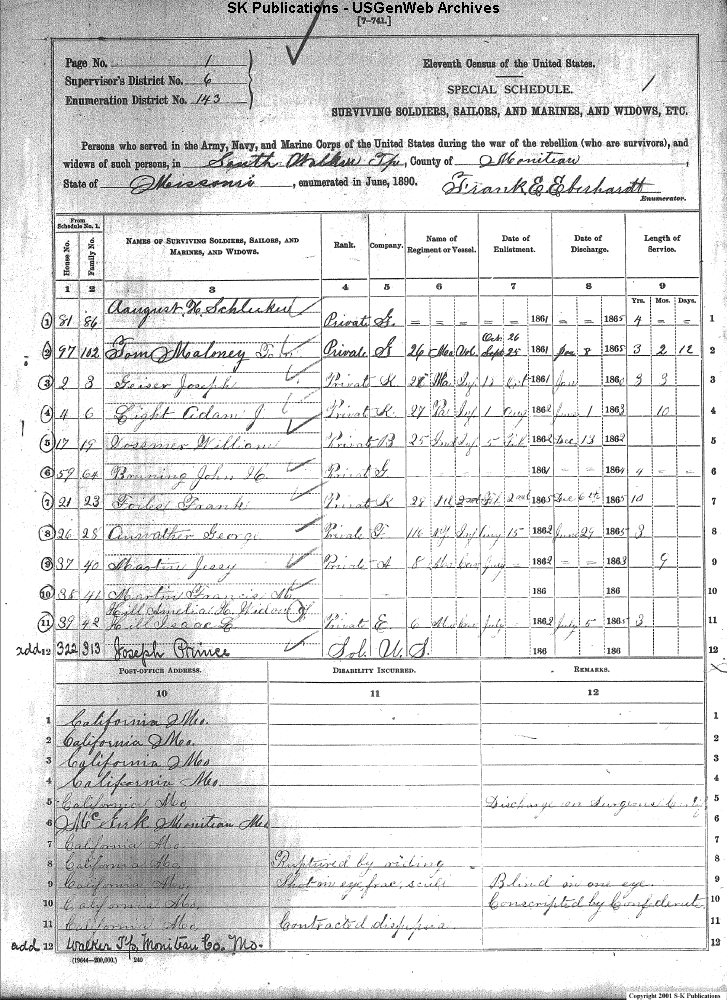 SK Publications - USGenWeb Archives
[7-741.]
Page No. 1
Supervisor's District No. 6
Enumeration District No. 143
Eleventh Census of the United States.
SPECIAL SCHEDULE.
SURVIVING SOLDIERS, SAILORS, AND MARINES, AND WIDOWS, ETC.
Persons who served in the Army, Navy, and Marine Corps of the United States during the war of the rebellion (who are survivors), and
widows of such persons, in South Walker Tp, County of Moniteau,
State of Missouri, enumerated in June, 1890. Frank E Eberhardt
Enumerator.
From Schedule No. 1.
House No. Family No. NAMES OF SURVIVING SOLDIERS, SAILORS, AND MARINES, AND WIDOWS. Rank. Company. Name of Regiment or Vessel. Date of Enlistment. Date of Discharge. Length of Service.
1 2 3 4 5 6 7 8 9
Yrs. Mos. Days.
1 81 86 August H. Private G. = = = = = 1861 = = 1865 4 = = 1
Oct. 26
2 97 102 Tom Maloney Private G 26 Mo Vol. Sept 25 1861 Jan 8 1865 3 2 12 2
3 2 3 Geiser Joseph Private K. Inf 1861 Jan 186 3 3 3
4 4 6 Light Adam J Private K. 27 Inf 1 Aug 1862 June 1 1863 10 4
5 17 19 Vossmer William Private B 25 Inf 5 Feb 1862 Dec 13 1862 5
6 59 64 John H. Private G 1861 = = 1864 4 = = 6
7 21 23 Frank Private K 28 Feb 2nd 1865 Dec 6th 1865 10 7
8 26 28 George Private F. 116 Inf 15 1862 June 29 1865 3 8
9 37 40 Martin Jessy Private A 8 July 1862 = = 1863 9 9
10 38 41 Martin Francis M 186 186 10
Hill Amelia H. Widow of
11 39 42 Hill Isaac Private E. 6 Mo July 1862 July 5 1865 3 11
add 12 322 313 Joseph Prince Sol. U. S. 186 186 12
POST-OFFICE ADDRESS. DISABILITY INCURRED. REMARKS.
10 11 12
1 California Mo. 1
2 California Mo. 2
3 California Mo. 3
4 California Mo. 4
5 California Mo Discharge on Surgeons 5
6 McGirk Moniteau Mo 6
7 California Mo 7
8 California Mo Ruptured by riding 8
9 California Mo. Shot in eye, frac. scull Blind in one eye. 9
10 California Mo Conscripted by Confederat 10
11 California Mo. Contracted 11
add 12 Walker Tp. Moniteau Co. Mo. 12
(19644—200,000.) 240
Copyright 2001 S-K Publications